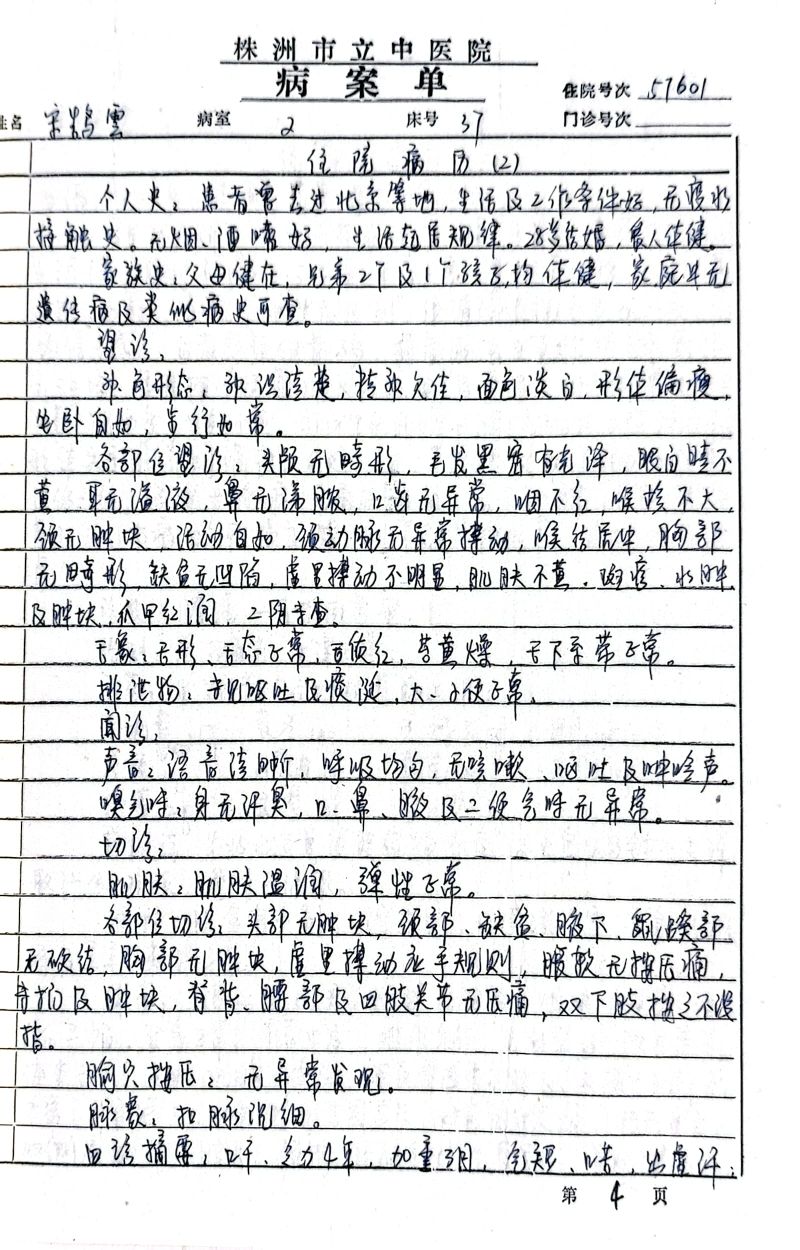 株洲市立中医院
病案单
住院号次 57601
姓名 宋鹤云 病室 2 床号 37 门诊号次
住院病历(2)
个人史：患者曾去过北京等地，生活及工作条件好，无疫水
接触史。无烟、酒嗜好，生活起居规律。28岁结婚，爱人体健。
家族史：父母健在，兄弟2个及1个孩子，均体健，家庭中无
遗传病及类似病史可查。
望诊：
神色形态：神识清楚，精神欠佳，面色淡白，形体偏瘦，
坐卧自如，步行如常。
各部位望诊：头颅无畸形，毛发黑密有光泽，眼白睛不
黄，耳无溢液，鼻无涕脓，口齿无异常，咽不红，喉核不大，
颈无肿块，活动自如，颈动脉无异常搏动，喉结居中，胸部
无畸形，缺盆无凹陷，虚里搏动不明显，肌肤不黄、斑疹、水肿
及肿块，爪甲红润，二阴未查。
舌象：舌形、舌态正常，舌质红，苔黄燥，舌下系带正常。
排泄物：未见呕吐及痰涎，大、小便正常。
闻诊：
声音：语音清晰，呼吸均匀，无咳嗽、呕吐及呻吟声。
嗅气味：身无汗臭，口、鼻、脓及二便气味无异常。
切诊：
肌肤：肌肤温润，弹性正常。
各部位切诊：头部无肿块，颈部、缺盆、腋下、鼠蹊部
无硬结，胸部无肿块，虚里搏动应手规则，腹软无按压痛，
未扪及肿块，脊背、腰部及四肢关节无压痛，双下肢按之不没
指。
胸穴按压：无异常发现。
脉象：扣脉沉细。
四诊摘要：口干、乏力4年，加重3月，气短、口苦，出虚汗；
第 4 页